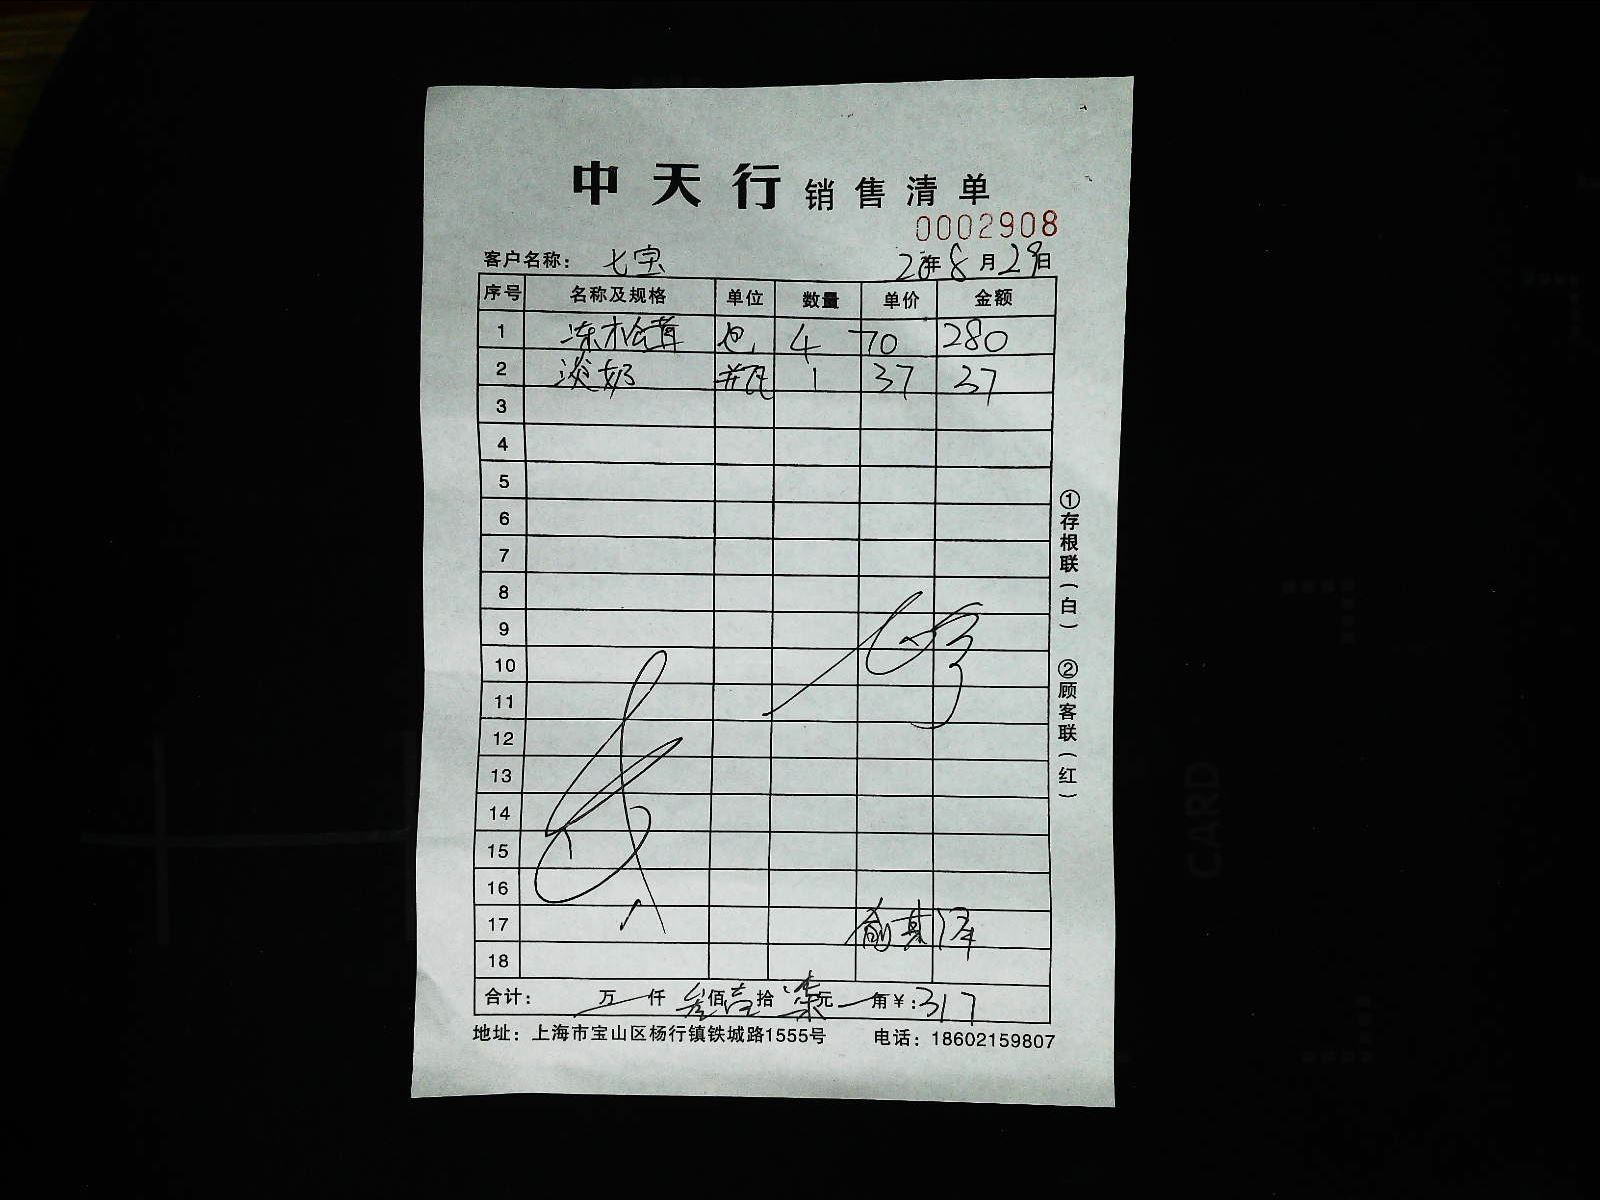 中天行 销售清单
0002908
客户名称： 七宝 20年 8月 29日
序号 名称及规格 单位 数量 单价 金额
1 冻松茸 包 4 70 280
2 淡奶 瓶 1 37 37
3
4
5
6
7
8
9
10
11
12
13
14
15
16
17
18
合计： 万 仟 叁佰壹拾柒元 角￥:317
地址：上海市宝山区杨行镇铁城路1555号 电话：18602159807
①存根联（白） ②顾客联（红）
CARD